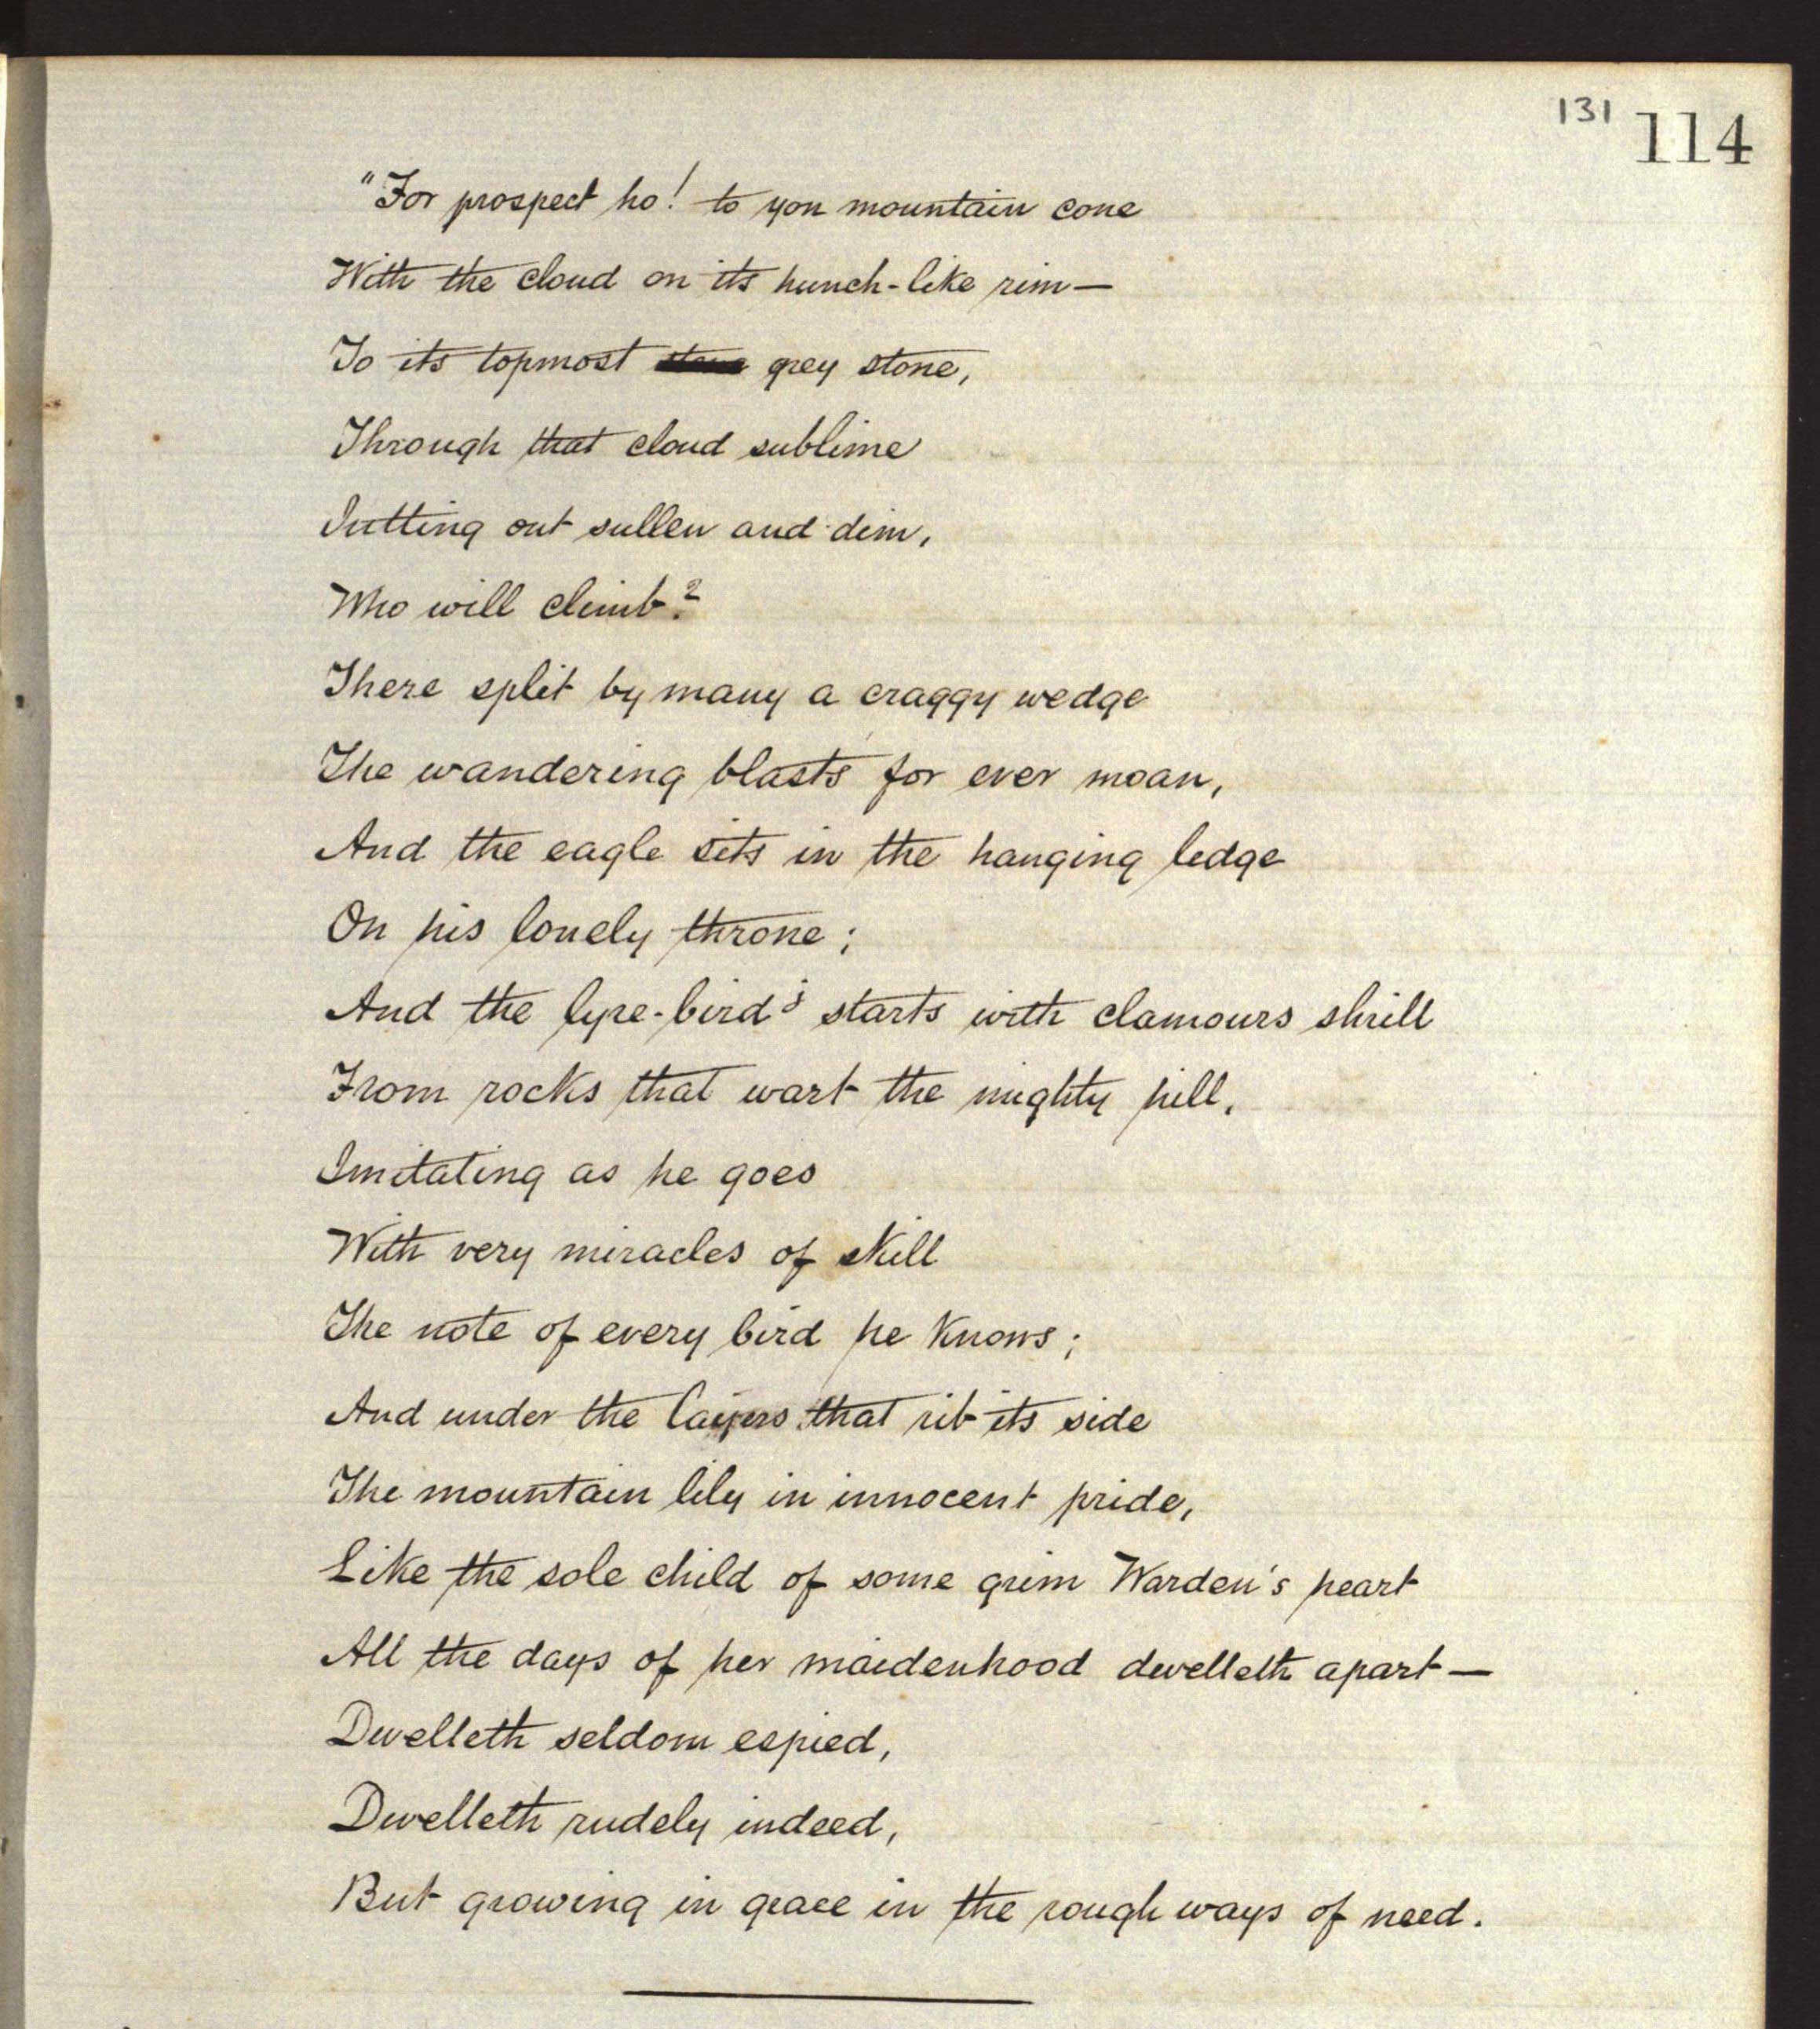 131 114
"For prospect ho! to yon mountain cone
With the cloud on its hunch-like rim—
To its topmost grey stone,
Through that cloud sublime
Jutting out sullen and dim,
Who will climb?
There split by many a craggy wedge
The wandering blasts for ever moan,
And the eagle sits in the hanging ledge
On his lonely throne;
And the lyre-bird's starts with clamours shrill
From rocks that wart the mighty hill,
Imitating as he goes
With very miracles of skill
The note of every bird he knows;
And under the layers that rib its side
The mountain lily in innocent pride,
Like the sole child of some grim Warden's heart
All the days of her maidenhood dwelleth apart—
Dwelleth seldom espied,
Dwelleth rudely indeed,
But growing in grace in the rough ways of need.